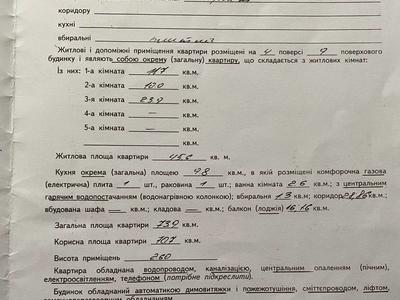 коридору
кухні
вбиральні
Житлові і допоміжні приміщення квартири розміщені на 4 поверсі 9 поверхового
будинку і являють собою окрему (загальну) квартиру, що складається з житлових кімнат:
Із них: 1-а кімната 11,7 кв.м.
2-а кімната 10.0 кв.м.
3-я кімната 23,9 кв.м.
4-а кімната — кв.м.
5-а кімната — кв.м.
кв.м.
Житлова площа квартири 45,6 кв. м.
Кухня окрема (загальна) площею 9,8 кв.м., в якій розміщені комфорочна газова
(електрична) плита 1 шт., раковина 1 шт.; ванна кімната 2,6 кв.м.; з центральним
гарячим водопостачанням (водонагрівною колонкою); вбиральня 1,3 кв.м; коридор кв.м.;
вбудована шафа — кв.м.; кладова — балкон (лоджія) кв.м.
Загальна площа квартири 73,9 кв.м.
Корисна площа квартири 70,7 кв.м.
Висота приміщень 260
Квартира обладнана водопроводом, каналізацією, центральним опаленням (пічним),
електроосвітленням, телефоном (потрібне підкреслити).
Будинок обладнаний автоматикою димовитяжки і пожежотушіння, сміттєпроводом, ліфтом,